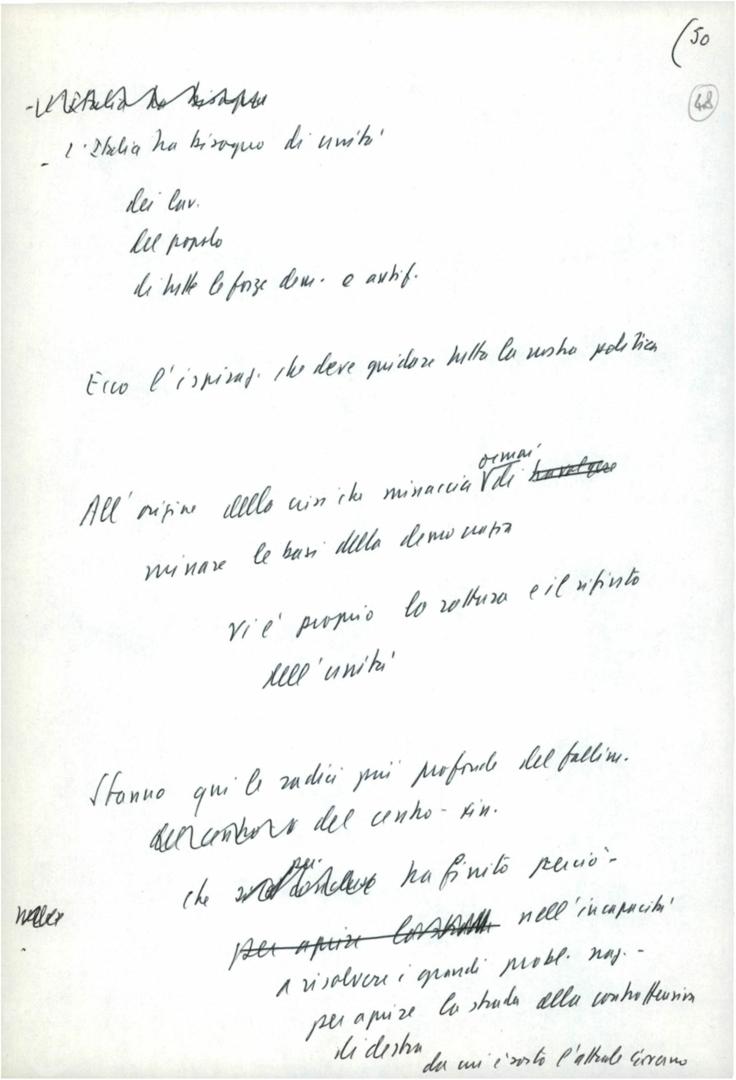 (50
48
- L'Italia ha bisogno
- L'Italia ha bisogno di unità
dei lav.
del popolo
di tutte le forze dem. e antif.
Ecco l'ispiraz. che deve guidare tutta la nostra politica
ormai
All'origine della crisi che minaccia di
minare le basi della democrazia
vi è proprio la rottura e il rifiuto
dell'unità
Stanno qui le radici più profonde del fallim.
del centro-sin.
che ha finito perciò -
per aprire nell'incapacità
a risolvere i grandi probl. naz. -
per aprire la strada alla controffensiva
di destra
da cui è sorto l'attuale Governo